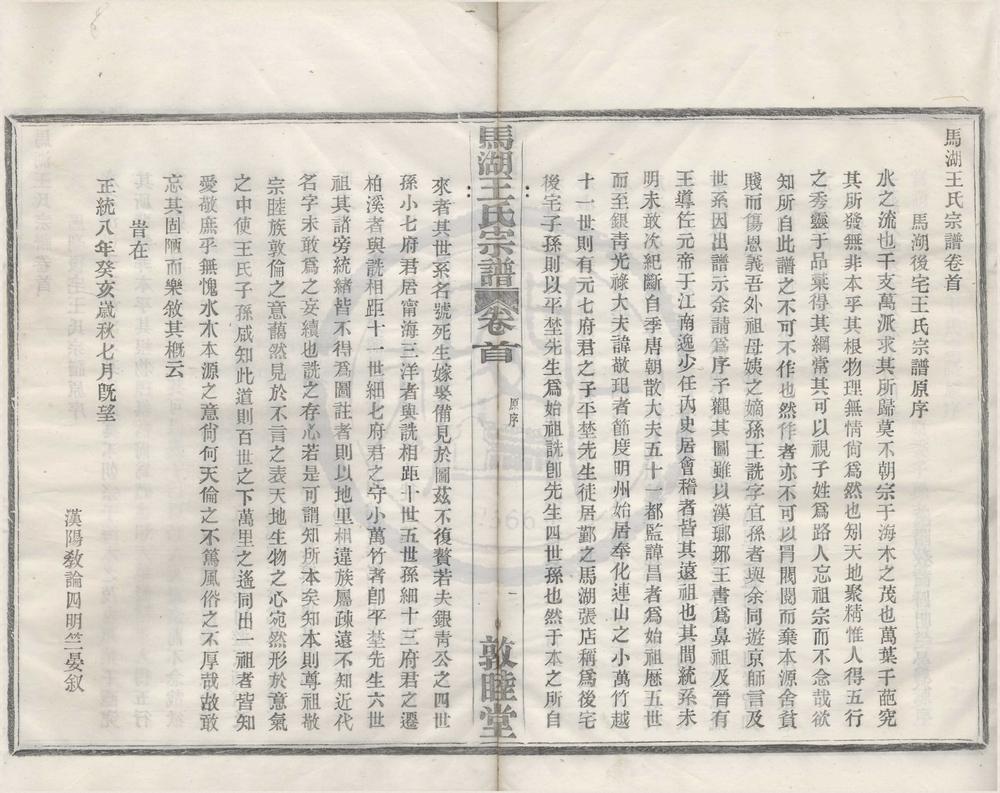 馬湖王氏宗譜卷首
馬湖後宅王氏宗譜原序
水之流也千支萬派求其所歸莫不朝宗于海木之茂也萬葉千葩究
其所發無非本乎其根物理無情尙爲然也矧天地聚精惟人得五行
之秀靈于品彙得其綱常其可以視子姓爲路人忘祖宗而不念哉欲
知所自此譜之不可不作也然作者亦不可以冐閥閱而棄本源舍貧
賤而傷恩義吾外祖母姨之嫡孫王詵字宜孫者與余同遊京師言及
世系因出譜示余請爲序予觀其圖雖以漢瑯琊王書爲鼻祖及晉有
王導佐元帝于江南逸少任內史居會稽者皆其遠祖也其間統系未
明未敢次紀斷自季唐朝散大夫五十一都監諱昌者爲始祖歷五世
而至銀靑光祿大夫諱敬玘者節度明州始居奉化連山之小萬竹越
十一世則有元七府君之子平埜先生徒居鄞之馬湖張店稱爲後宅
後宅子孫則以平埜先生爲始祖詵卽先生四世孫也然于本之所自
馬湖王氏宗譜 卷首
原序
一
敦睦堂
來者其世系名號死生嫁娶備見於圖茲不復贅若夫銀青公之四世
孫小七府君居甯海三洋者與詵相距十世五世孫細十三府君之遷
柏溪者與詵相距十一世細七府君之守小萬竹者卽平埜先生六世
祖其諸旁統緒皆不得爲圖註者則以地里相違族屬疎遠不知近代
名字未敢爲之妄續也詵之存心若是可謂知所本矣知本則尊祖敬
宗睦族敦倫之意藹然見於不言之表天地生物之心宛然形於意氣
之中使王氏子孫咸知此道則百世之下萬里之遙同出一祖者皆知
愛敬庶乎無愧水木本源之意尙何天倫之不篤風俗之不厚哉故敢
忘其固陋而樂敘其槪云
旹在
正統八年癸亥歲秋七月旣望
漢陽敎諭四明竺晏叙